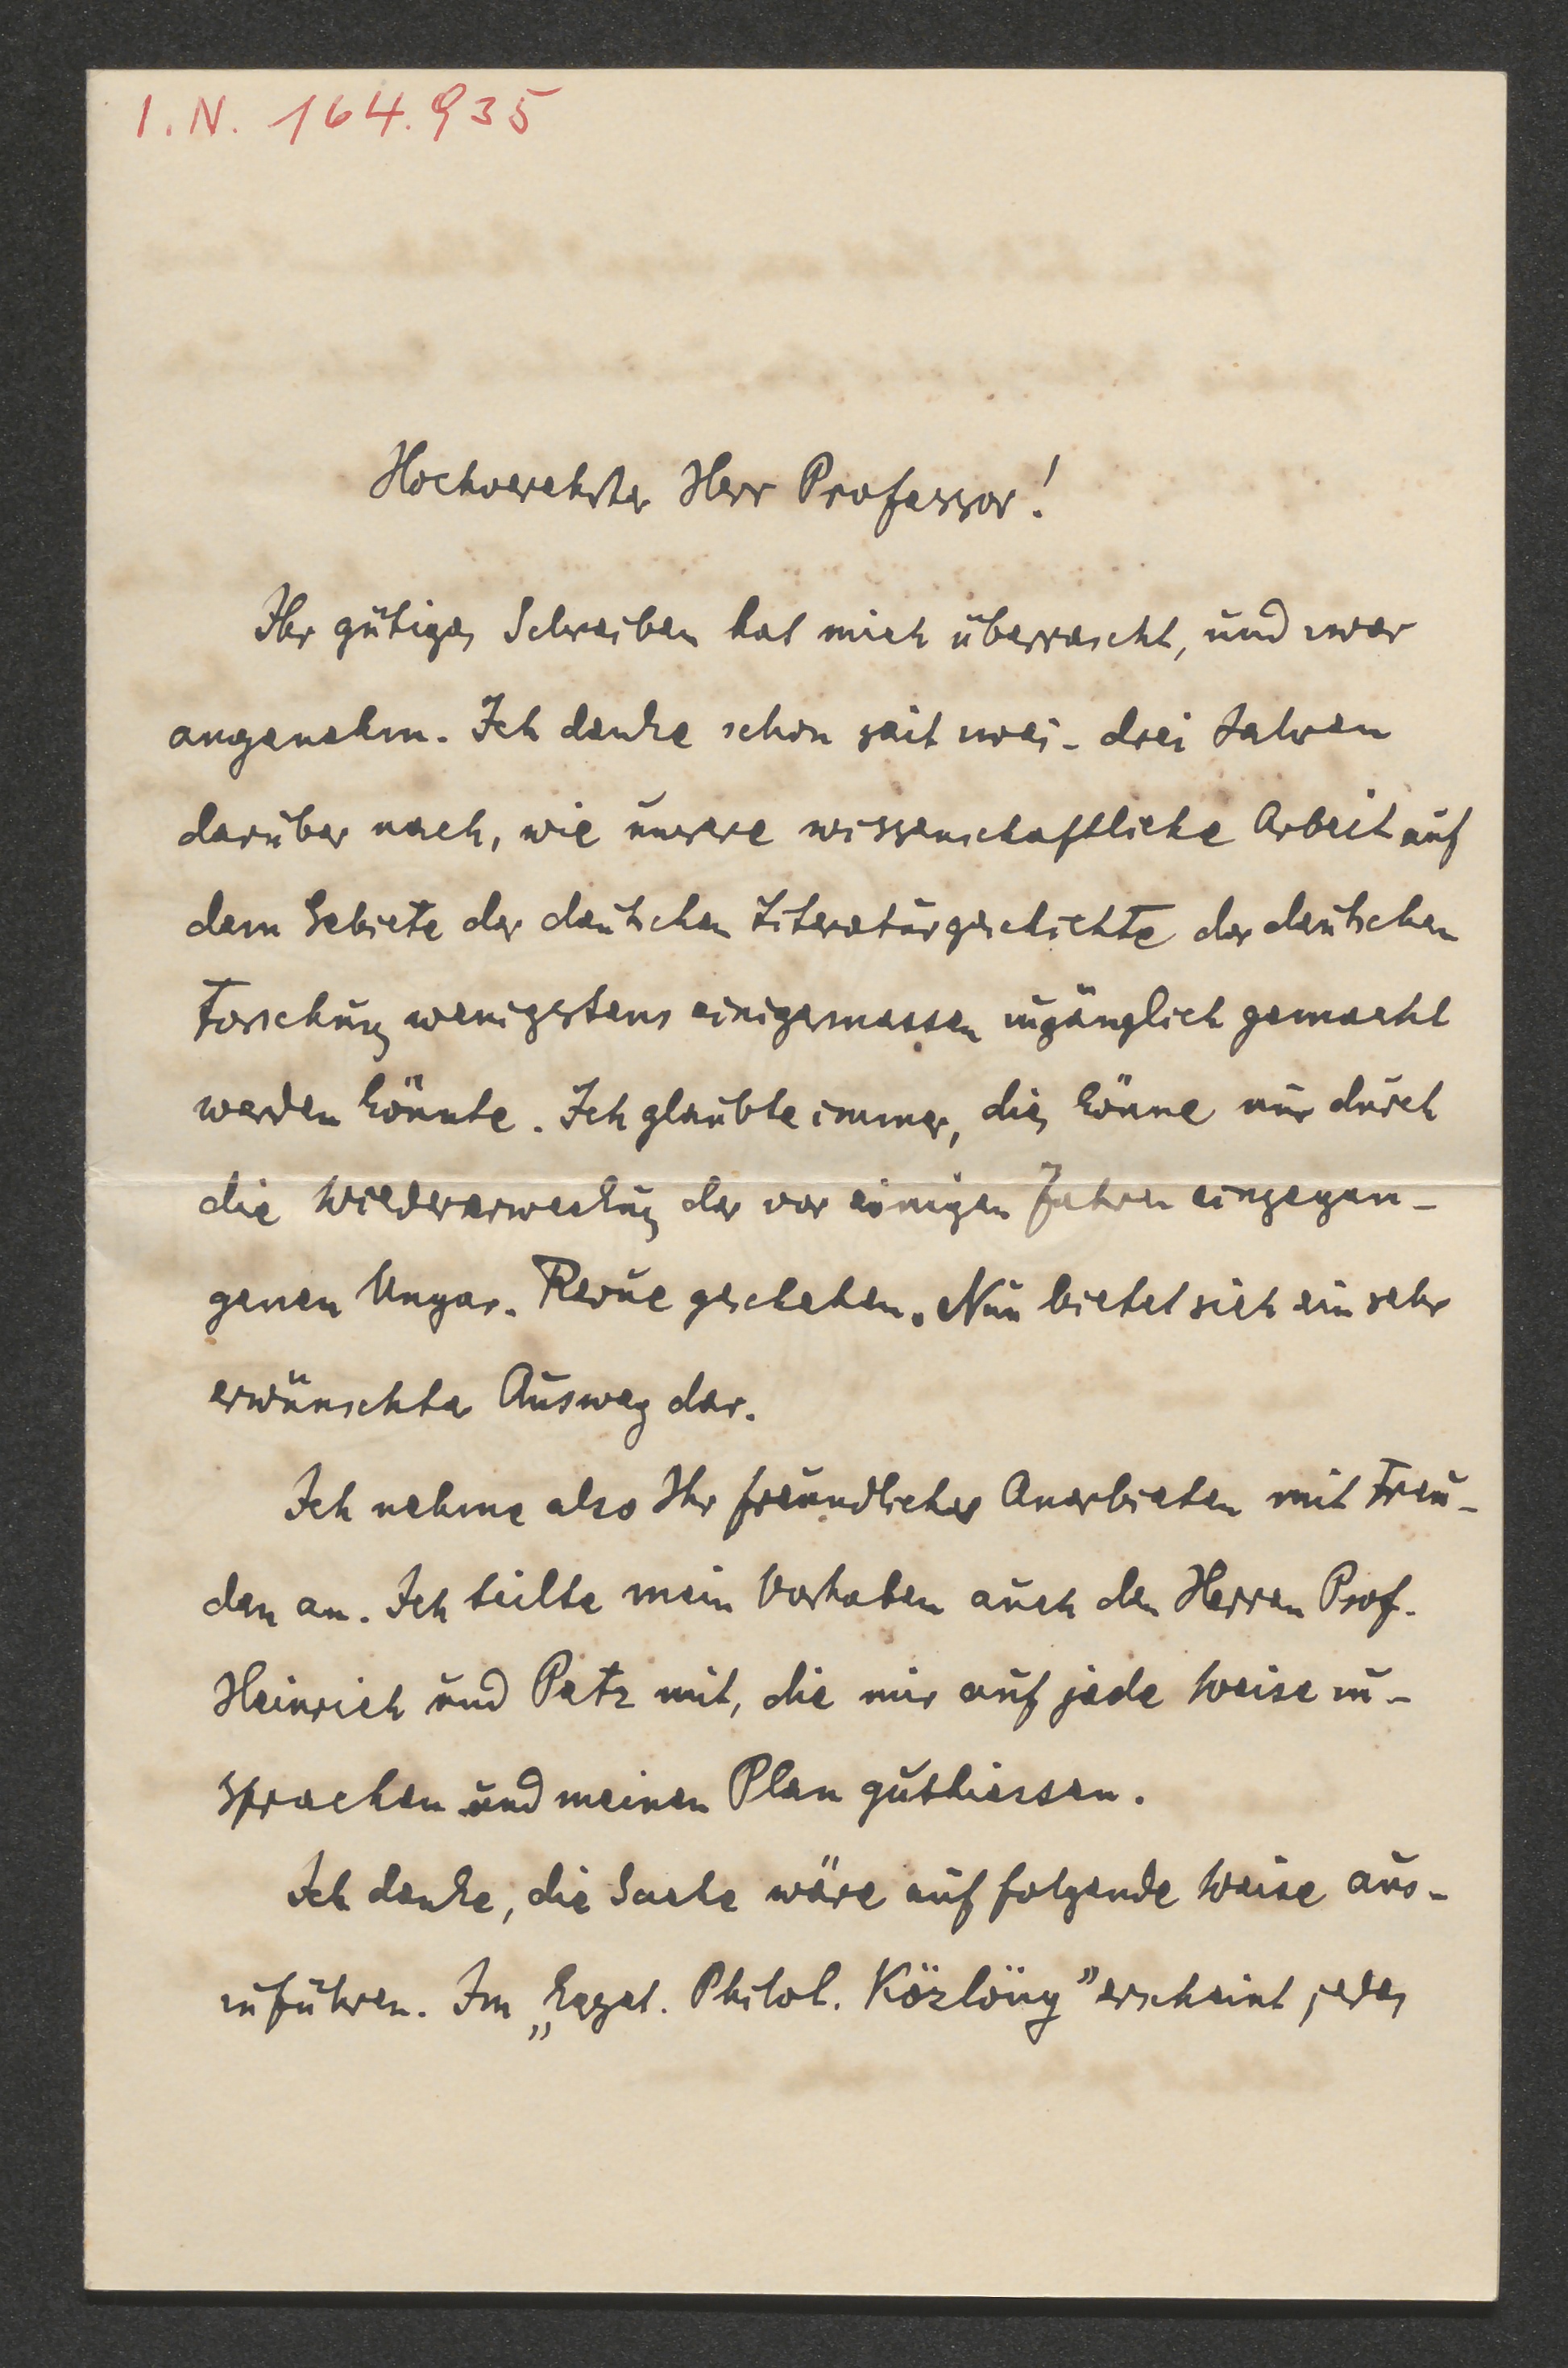 I.N. 164.935
Hochverehrter Herr Professor!
Ihr gütiges Schreiben hat mich überrascht, und zwar
angenehm. Ich denke schon seit zwei - drei Jahren
darüber nach, wie unsere wissenschaftliche Arbeit auf
dem Gebiete der deutschen Literaturgeschichte der deutschen
Forschung wenigstens einigermassen zugänglich gemacht
werden könnte. Ich glaubte immer, dies könne nur durch
die Wiedererweckung der vor einigen Jahren eingegan-
genen Ungar. Revue geschehen. Nun bietet sich ein sehr
erwünschter Ausweg dar.
Ich nehme also Ihr freundliches Anerbieten mit Freu-
den an. Ich teilte mein Vorhaben auch den Herren Prof.
Heinrich und Petz mit, die mir auf jede Weise zu-
sprachen und meinen Plan guthiessen.
Ich denke, die Sache wäre auf folgende Weise aus-
zuführen. Im „Egyet. Philol. Közlöny" erscheint jedes